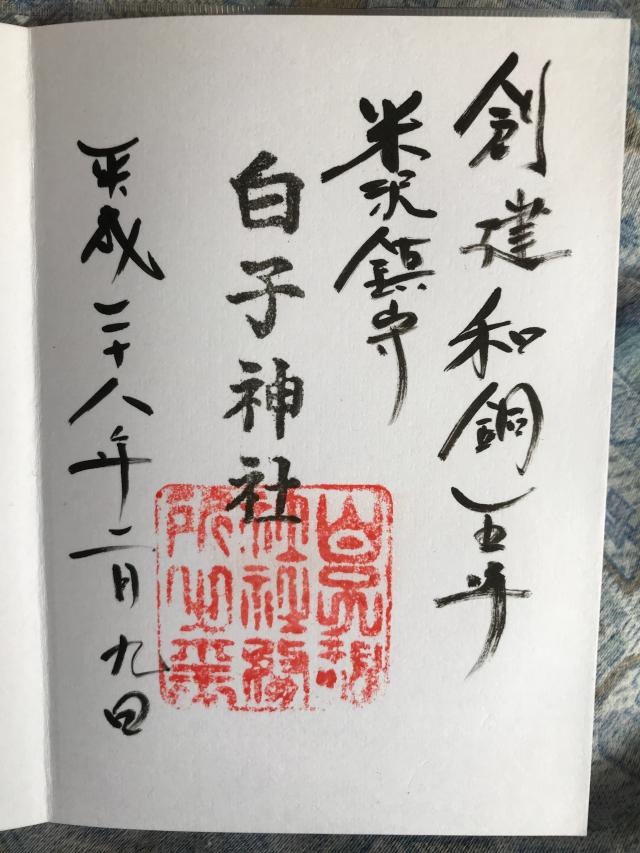 創建和銅五年
米沢鎮守
白子神社
平成二十八年二月九日
白子神
社社務
所之